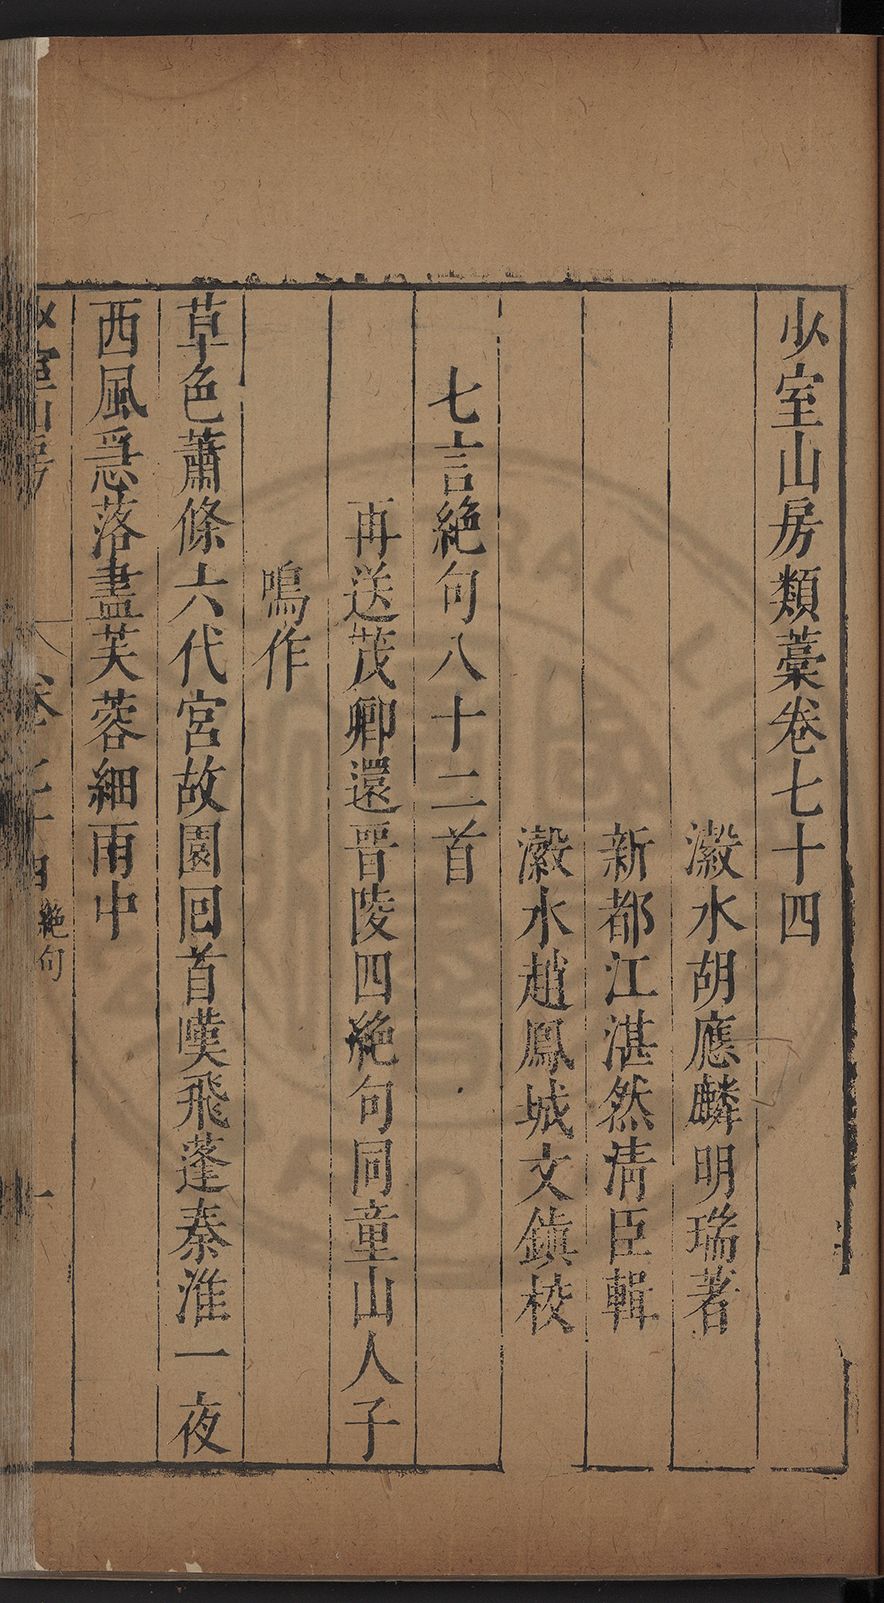 少室山房類藁卷七十四
瀫水胡應麟明瑞著
新都江湛然清臣輯
瀫水趙鳳城文鎮校
七言絶句八十二首
再送茂卿還晋陵四絶句同童山人子
鳴作
草色蕭條六代宮故園回首嘆飛蓬秦淮一夜
西風急落盡芙蓉細雨中
少室山房
卷七十四
絶句
一